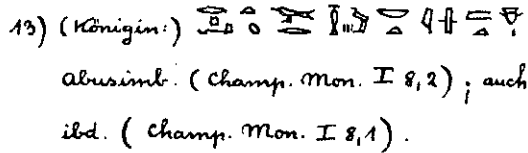 13) (Königin:)
abusimb. (Champ. Mon. I 8,2) ; auch
ibd. (Champ. Mon. I 8,1).